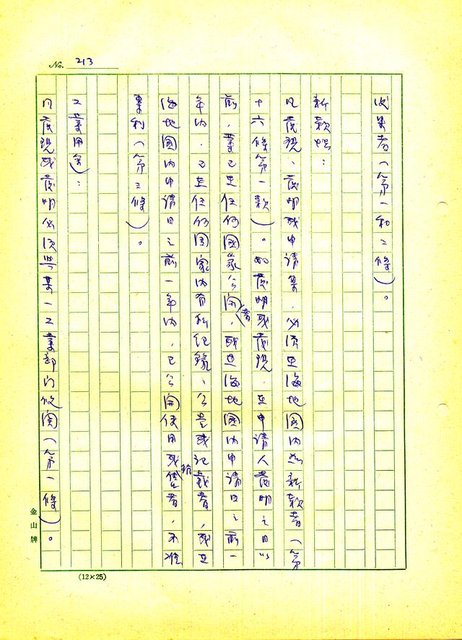 No. 213
效果者（第一和二條）。
新款性：
凡發現、發明或申請案，必須是海地國內無新款者（第
十六條第一款）。如發明或發現，在申請人發明之日以
前，業已在任何國家公開者，或在海地國內申請日之前一
年內，已在任何國家內有利紀錄、公告或記載者，或在
海地國內申請日之前一年內，已公開使用或銷售者，不准
專利（第二條）。
工業用會：
凡發現或發明必須與某一工業部門攸關（第一條）。
金山牌
(12×25)